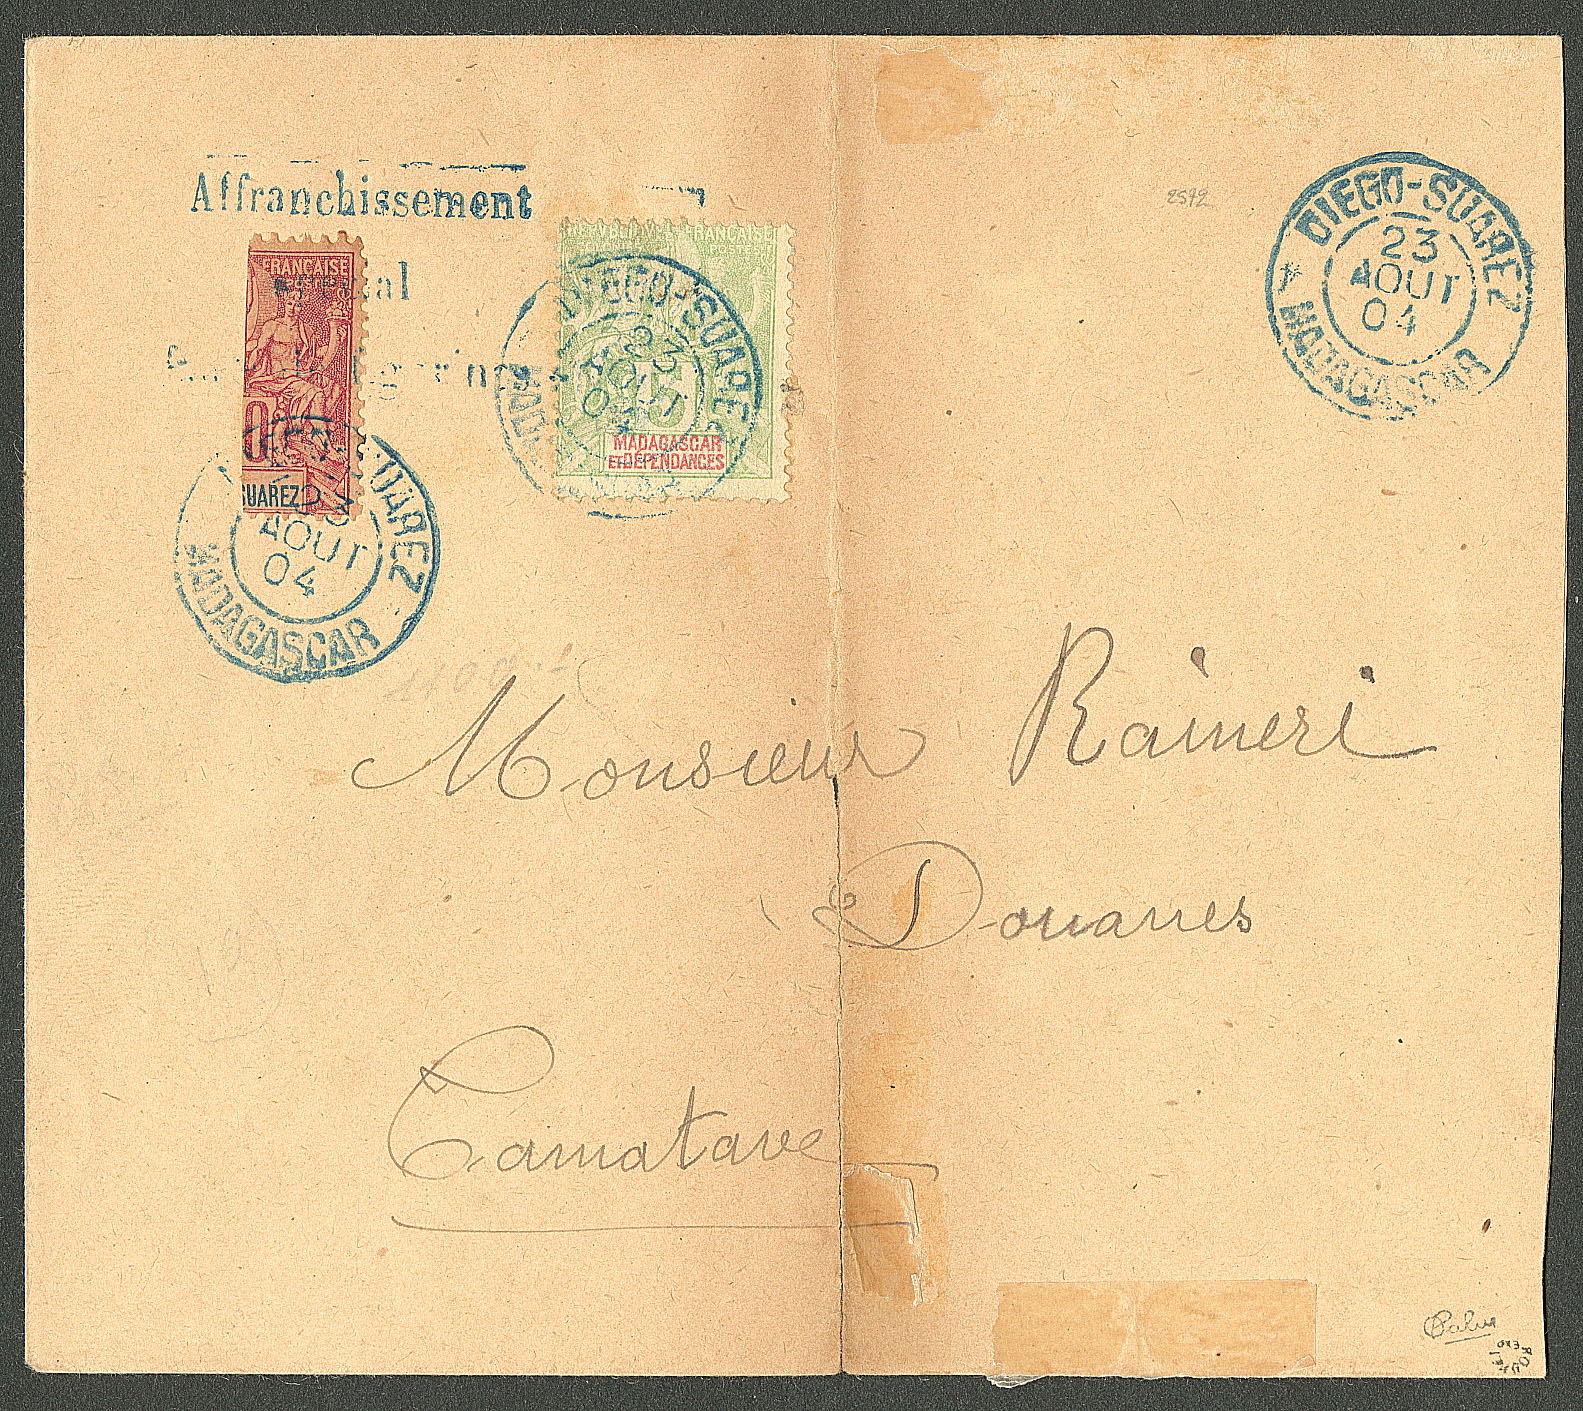 Affranchissement
FRANÇAISE
0
SUAREZ
DIEGO-SUAREZ
23
AOUT
04
MADAGASCAR
FRANÇAISE
POSTES
5
MADAGASCAR
ET DÉPENDANCES
DIEGO-SUAREZ
23
2572
DIEGO-SUAREZ
23
AOUT
04
MADAGASCAR
Monsieur Raineri
Douanes
Tamatave
Calves